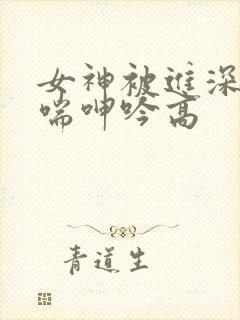 女神被进深
喘呻吟高
青道生